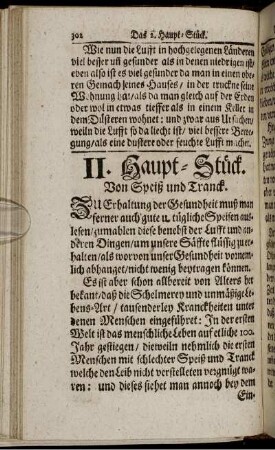 302 Das 1. Haupt-Stück.
Wie nun die Lufft in hochgelegenen Länderen
viel besser uñ gesunder als in denen niedrigen ist/
eben also ist es viel gesunder da man in einen oberen
Gemach seines Hauses/ in der truckne seine
Wohnung hat/ als da man gleich auf der Erden
oder wol in etwas tieffer als in einem Keller in
dem Düsteren wohnet: und zwar aus Ursachen/
weiln die Lufft so da liecht ist/ viel besser Bewegung/
als eine dustere oder feuchte Lufft machet.
II. Haupt-Stück.
Von Speiß und Tranck.
ZU Erhaltung der Gesundheit muß man
ferner auch gute u. tügliche Speisen auslesen/
zumahlen diese benebst der Lufft und anderen
Dingen/ um unsere Säffte flüssig zu erhalten/
als worvon unser Gesundheit vornemlich
abhanget/ nicht wenig beytragen können.
Es ist aber schon allbereit von Alters her
bekant/ daß die Schelmerey und unmäßige Lebens-Art/
tausenderley Kranckheiten unter
denen Menschen eingeführet: In der ersten
Welt ist das menschliche Leben auf etliche 100.
Jahr gestiegen/ dieweiln nehmlich die ersten
Menschen mit schlechter Speiß und Tranck
welche den Leib nicht verstelleten vergnügt waren:
und dieses siehet man annoch bey dem
Ein-